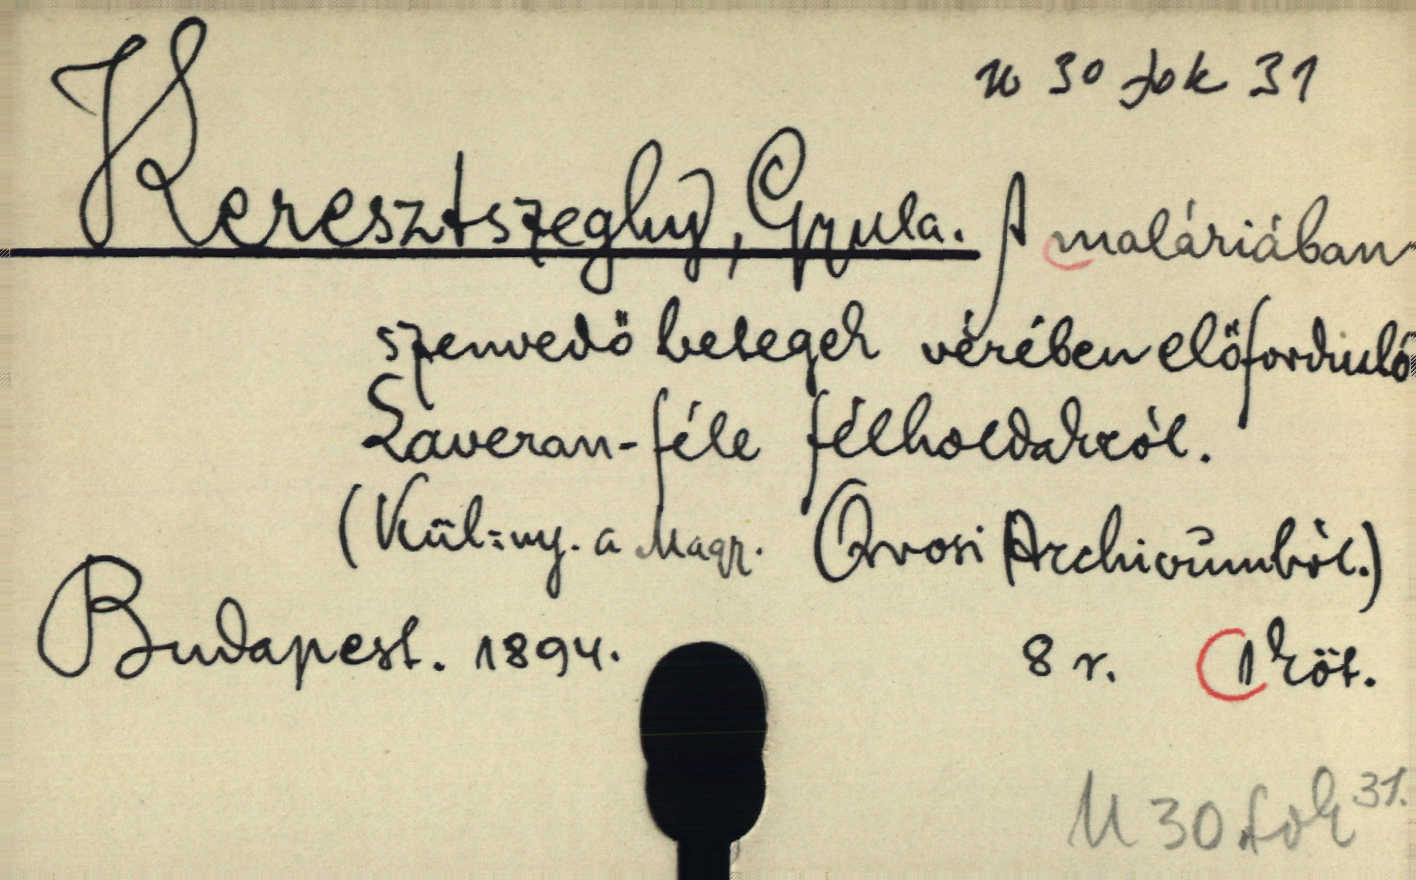 U 30 fok 31
Keresztszeghy, Gyula. A maláriában
szenvedő betegek vérében előforduló
Laveran-féle félholdakról.
(Kül=ny. a Magy. Orvosi Archivumból.)
Budapest. 1894. 8 r. 1 köt.
U 30 fok 31.